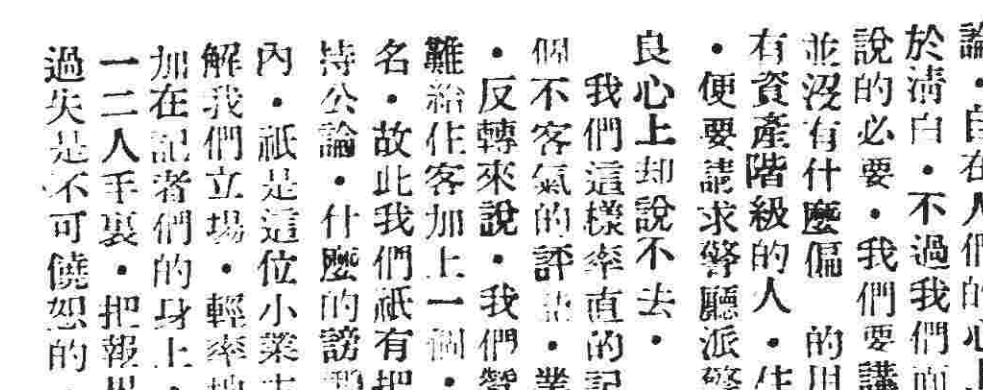 論・自在人們的心上
於清白・不過我們而
說的必要・我們要講
並沒有什麼偏 的用
有資產階級的人・住
・便要請求警廳派警
良心上却說不去・
我們這樣率直的記
個不客氣的評 ・業
・反轉來說・我們
難給住客加上一個・
名・故此我們祇有把
持公論・什麼的謗
內・祇是這位小業主
解我們立場・輕率地
加在記者們的身上・
一二人手裏・把報
過失是不可饒恕的・